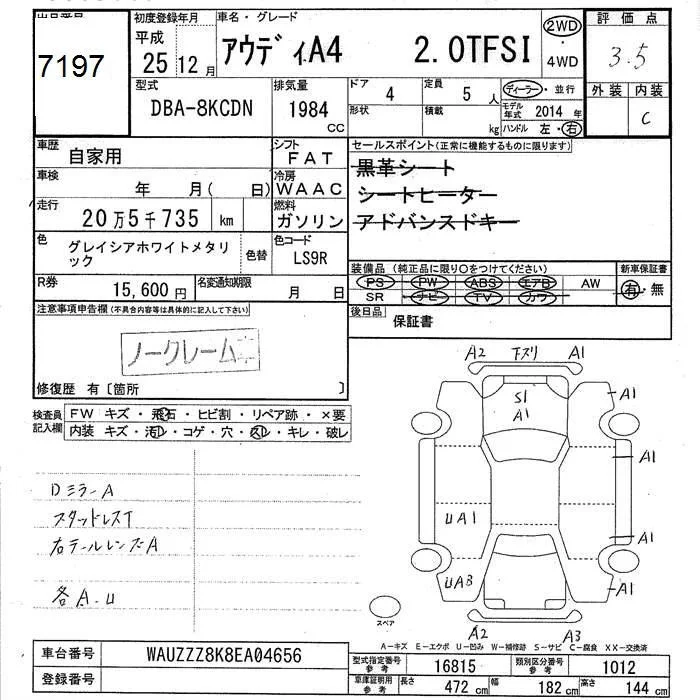 7197
初度登録年月
平成
25 12月
車名・グレード
アウディA4 2.0TFSI
2WD
・
4WD
評価点
3.5
外装 内装
C
型式
DBA-8KCDN
排気量
1984
CC
ドア 4
形状
定員 5 人
積載 kg
ディーラー・並行
モデル年式 2014 年
ハンドル 左・右
車歴 自家用
シフト
FAT
車検 年 月( 日)
冷房
WAAC
走行
20万5千735 km
燃料
ガソリン
色
グレイシアホワイトメタリ
ック
色替
色コード
LS9R
R券
15,600 円
名変通知期限
月 日
セールスポイント(正常に機能するものに限ります)
黒革シート
シートヒーター
アドバンスドキー
装備品(純正品に限り○をつけてください)
PS PW ABS エアB AW
SR ナビ TV カワ
新車保証書
有・無
後日品 保証書
注意事項申告欄(不具合内容等は具体的に記入して下さい)
ノークレーム
修復歴 有〔箇所 〕
検査員
記入欄
FW キズ・飛石・ヒビ割・リペア跡・×要
内装 キズ・汚レ・コゲ・穴・スレ・キレ・破レ
DミラーA
スタッドレスT
右テールレンズA
各A.U
A2 下スリ A1
S1
A1
A1
A1
UA1
A1
UA3
A1
A2
A3
スペア
A−キズ E−エクボ U−凹み W−補修跡 S−サビ C−腐食 XX−交換済
車台番号 WAUZZZ8K8EA04656
登録番号
型式指定番号
参考
16815
類別区分番号
参考
1012
車庫証明用
参考
長さ 472 cm 幅 182 cm 高さ 144 cm